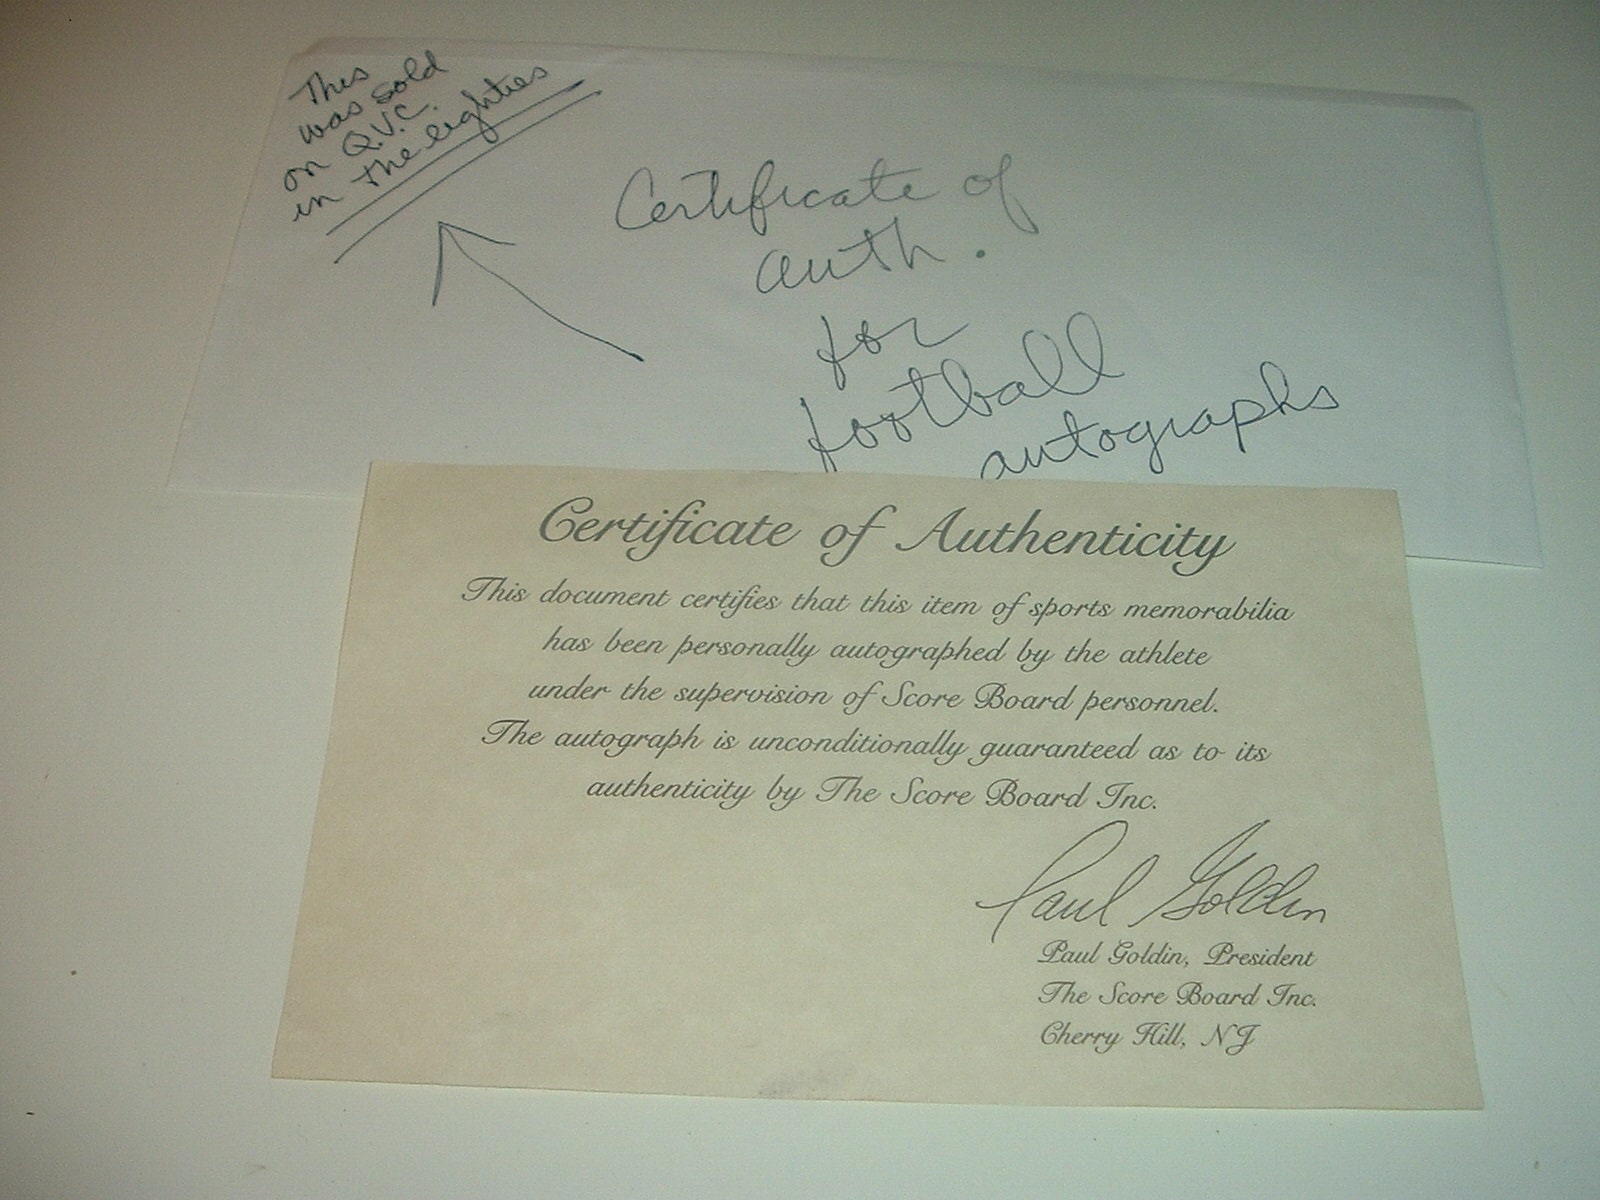 This
was sold
on Q.V.C.
in the eighties
Certificate of
auth.
for
football
autographs
Certificate of Authenticity
This document certifies that this item of sports memorabilia
has been personally autographed by the athlete
under the supervision of Score Board personnel.
The autograph is unconditionally guaranteed as to its
authenticity by The Score Board Inc.
Paul Goldin
Paul Goldin, President
The Score Board Inc.
Cherry Hill, NJ